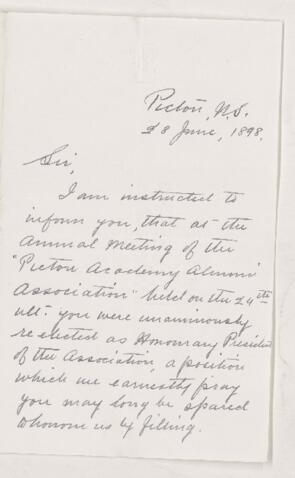 Pictou, N.S.
28 June, 1898.
Sir,
I am instructed to
inform you, that at the
Annual Meeting of the
"Pictou Academy Alumni
Association" held on the 24th
ult. you were unanimously
re elected as Honourary President
of the Association, a position
which we earnestly pray
you may long be spared
to honour us by filling.